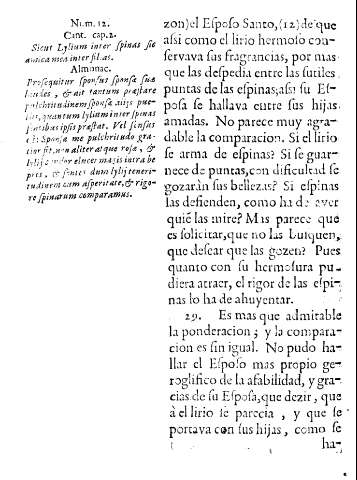 Num. 12.
Cant. cap. 2.
Sicut Lylium inter spinas sic
amica mea inter filias.
Almonac.
Prosequitur sponsus sponsæ suæ
laudes, & ait tantum præstare
pulchritudinem sponsæ aliis puel-
lis, quantum lylium inter spinas
ipsis præstat. Vel sensus
Sponsa me pulchritudo gra-
tior fit, non aliter atque rosa, &
lylij elucet magis intra ve-
pres, & sentes dum lylij teneri-
tudinem cum asperitate, & rigo-
re spinarum comparamus.
zon) el Esposo Santo, (12) de que
assi como el lirio hermoso con-
servava sus fragrancias, por mas
que las despedia entre las sutiles
puntas de las espinas; assi su Es-
posa se hallava entre sus hijas
amadas. No parece muy agra-
dable la comparacion. Si el lirio
se arma de espinas? Si se guar-
nece de puntas, con dificultad se
gozaràn sus bellezas? Si espinas
las defienden, como ha de aver
quiē las mire? Mas parece que
es solicitar, que no las busquen,
que desear que las gozen? Pues
quanto con su hermosura pu-
diera atraer, el rigor de las espi-
nas lo ha de ahuyentar.
29. Es mas que admirable
la ponderacion; y la compara-
cion es sin igual. No pudo ha-
llar el Esposo mas propio ge-
roglifico de la afabilidad, y gra-
cias de su Esposa, que dezir, que
à el lirio se parecia, y que se
portava con sus hijas, como se
ha-